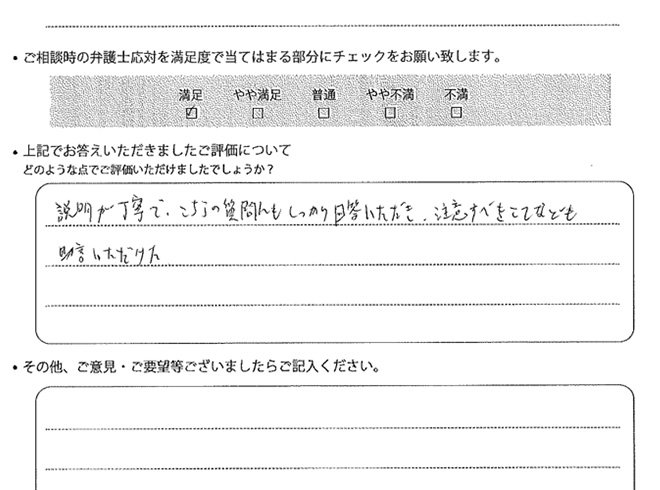 ・ご相談時の弁護士応対を満足度で当てはまる部分にチェックをお願い致します。
満足 やや満足 普通 やや不満 不満
☑ □ □ □ □
・上記でお答えいただきましたご評価について
どのような点でご評価いただけましたでしょうか？
説明が丁寧で、こちらの質問にもしっかり回答いただき、注意すべきことなども
助言いただけた
・その他、ご意見・ご要望等ございましたらご記入ください。